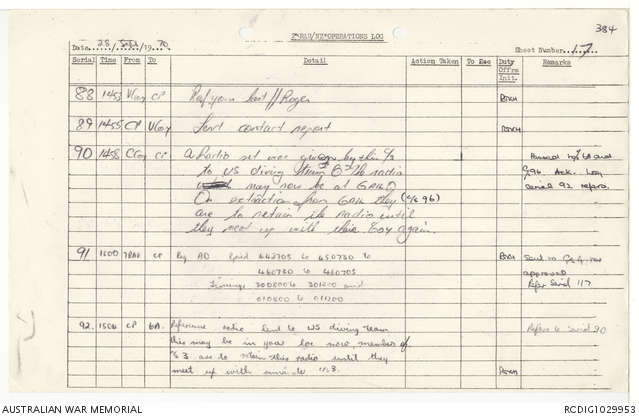 384
2 RAR/NZ OPERATIONS LOG
Date 28/Sept/1970
Sheet Number 17
Serial Time From To Detail Action Taken To Exe Duty Offrs Init. Remarks
88 1453 VCoy CP Ref your last // Roger
89 1455 CP VCoy Send contact report
90 1458 CCoy CP A Radio set was given by this C/S
to US diving team The radio
may now be at GAIL
On extraction from GAIL they (C/S 96)
are to retain the radio until
they meet up with their Coy again.
6A and
96 Ack. Log
Serial 92 refers.
91 1500 CP Req AO Grid 443705 to 450730 to
460730 to 460705
Timings 300800 to 301200 and
010800 to 011200
approved
Refer Serial 117
92. 1506 CP 6A. Reference radio lent to US diving team
this may be in your loc now member of
C/S 3 are to retain this radio until they
meet up with C/S 3.
Refers to Serial 90
AUSTRALIAN WAR MEMORIAL
RCDIG1029953